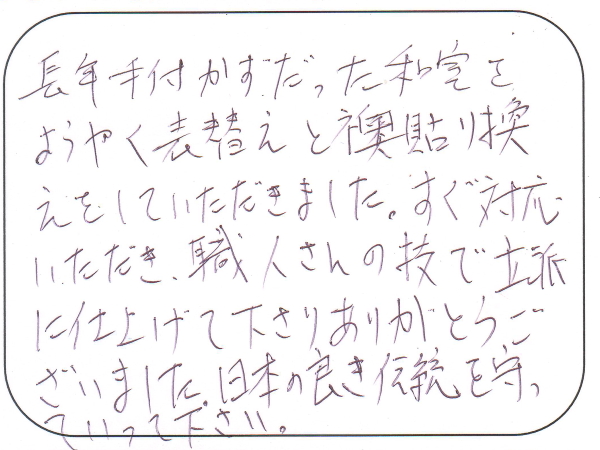 長年手付かずだった和室を
ようやく表替えと襖貼り換
えをしていただきました。すぐ対応
いただき、職人さんの技で立派
に仕上げて下さりありがとうご
ざいました。日本の良き伝統を守っ
ていって下さい。